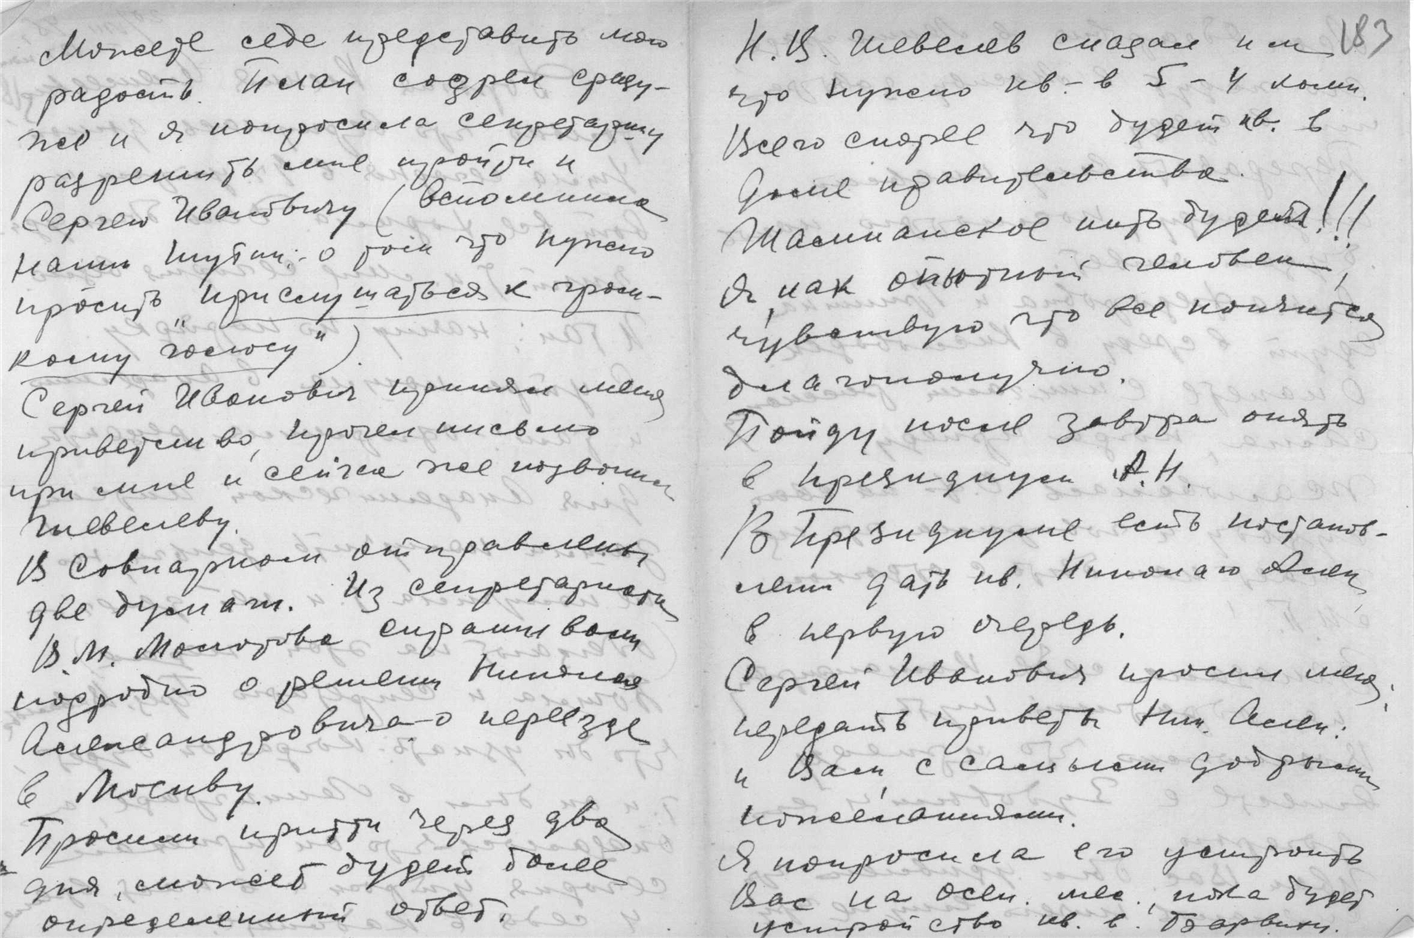 Можете себе представить мою
радость. План созрел сразу-
же и я попросила секретаршу
разрешить мне пройти к
Сергею Ивановичу (вспомнила
наши шутки: о том что нужно
просить "прислушаться к гром-
кому голосу")
Сергей Иванович принял меня
приветливо, прочел письмо
при мне и сейчас же позвонил
Шевелеву.
В Совнарком отправлены
две бумаги. Из секретариата
В.М. Молотова спрашивали
подробно о решении Николая
Александровича о переезде
в Москву.
Просили притти через два
дня, может будет более
определенный ответ.
Н.В. Шевелев сказал им 183
что нужно кв.-в 5-4 комн.
Всего скорее что будет кв. в
Доме правительства.
Шампанское пить будем!!!
Я, как опытный человек,
чувствую что все кончится
благополучно.
Пойду после завтра опять
в президиум А.Н.
В Президиуме есть постанов-
лении дать кв. Николаю Алек
в первую очередь.
Сергей Иванович просил меня
передать приветы Ник. Алек.
и Вам, с самыми добрыми
пожеланиями.
Я попросила его устроить
Вас на осен. мес., пока будет
устройство кв. в. Барвихи.